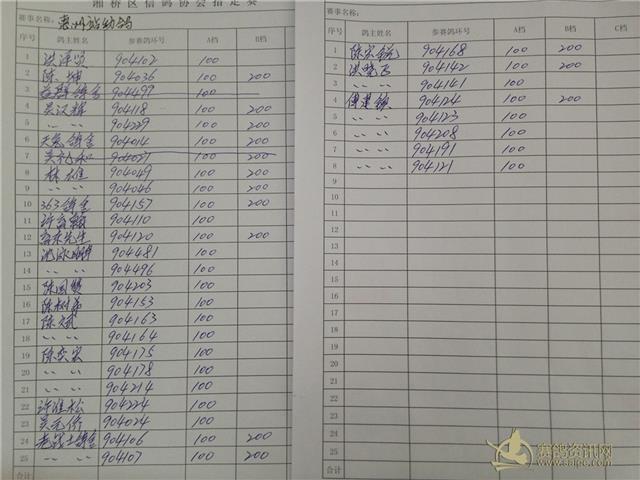 湘桥区信鸽协会指定赛
赛事名称: 惠州站幼鸽
序号 鸽主姓名 参赛鸽环号 A档 B档
1 洪泽贤 904102 100
2 陈坤 904036 100 200
3 904499 100
4 吴汉辉 904118 100 200
5 〃 〃 904229 100 200
6 904014 100 200
7 904027 100 200
8 林雄 904049 100 200
9 〃 〃 904046 100 200
10 363鸽舍 904157 100 200
11 904110 100
12 904120 100 200
13 904481 100
14 〃 〃 904496 100
15 904203 100
16 904153 100
17 陈斌 904163 100
18 〃 〃 904164 100
19 陈奕宏 904175 100
20 〃 〃 904178 100
21 〃 〃 904214 100
22 许淮松 904224 100
23 904024 100
24 904106 100 200
25 〃 〃 904107 100 200
合计
赛事名称:
序号 鸽主姓名 参赛鸽环号 A档 B档 C档
1 904168 100 200
2 洪晓飞 904142 100 200
3 〃 〃 904141 100
4 904124 100 200
5 〃 〃 904123 100
6 〃 〃 904208 100
7 〃 〃 904191 100
8 〃 〃 904121 100
9
10
11
12
13
14
15
16
17
18
19
20
21
22
23
24
25
合计
赛鸽资讯网
www.saige.com